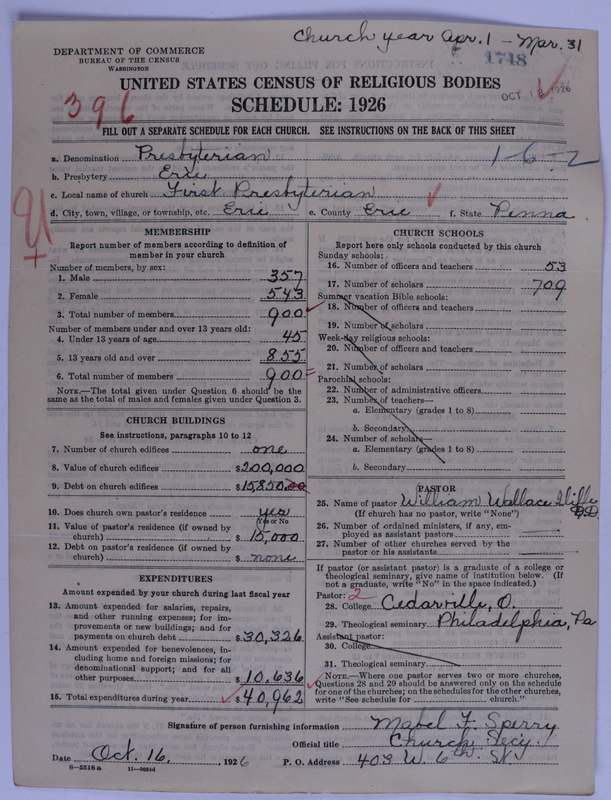 Church year Apr. 1 - Mar. 31
1748
DEPARTMENT OF COMMERCE
BUREAU OF THE CENSUS
WASHINGTON
UNITED STATES CENSUS OF RELIGIOUS BODIES
OCT 18 1926
SCHEDULE: 1926
396
FILL OUT A SEPARATE SCHEDULE FOR EACH CHURCH. SEE INSTRUCTIONS ON THE BACK OF THIS SHEET
a. Denomination Presbyterian
1-6-2
b. Presbytery Erie
c. Local name of church First Presbyterian
d. City, town, village, or township, etc. Erie e. County Erie f. State Penna.
MEMBERSHIP
Report number of members according to definition of
member in your church
Number of members, by sex:
1. Male 357
2. Female 543
3. Total number of members 900
Number of members under and over 13 years old:
4. Under 13 years of age 45
5. 13 years old and over 855
6. Total number of members 900
NOTE.—The total given under Question 6 should be the
same as the total of males and females given under Question 3.
CHURCH BUILDINGS
See instructions, paragraphs 10 to 12
7. Number of church edifices one
8. Value of church edifices $200,000
9. Debt on church edifices $15,850.00
10. Does church own pastor's residence? yes
Yes or No
11. Value of pastor's residence (if owned by
church) $ 15,000
12. Debt on pastor's residence (if owned by
church) $ none
EXPENDITURES
Amount expended by your church during last fiscal year
13. Amount expended for salaries, repairs,
and other running expenses; for im-
provements or new buildings; and for
payments on church debt $30,326
14. Amount expended for benevolences, in-
cluding home and foreign missions; for
denominational support; and for all
other purposes $10,636
15. Total expenditures during year $40,962
CHURCH SCHOOLS
Report here only schools conducted by this church
Sunday schools:
16. Number of officers and teachers 53
17. Number of scholars 709
Summer vacation Bible schools:
18. Number of officers and teachers
19. Number of scholars
Week-day religious schools:
20. Number of officers and teachers
21. Number of scholars
Parochial schools:
22. Number of administrative officers
23. Number of teachers—
a. Elementary (grades 1 to 8)
b. Secondary
24. Number of scholars—
a. Elementary (grades 1 to 8)
b. Secondary
PASTOR
25. Name of pastor William Wallace
D.D.
(If church has no pastor, write "None")
26. Number of ordained ministers, if any, em-
ployed as assistant pastors
27. Number of other churches served by the
pastor or his assistants
If pastor (or assistant pastor) is a graduate of a college or
theological seminary, give name of institution below. (If
not a graduate, write "No" in the space indicated.)
Pastor: 2
28. College Cedarville, O.
29. Theological seminary Philadelphia, Pa
Assistant pastor:
30. College
31. Theological seminary
NOTE.—Where one pastor serves two or more churches,
Questions 28 and 29 should be answered only on the schedule
for one of the churches; on the schedules for the other churches,
write "See schedule for church."
Signature of person furnishing information Mabel F. Sperry
Official title Church Secy.
Date Oct. 16, 1926 P. O. Address 403 W. 6th St
8—5518 a